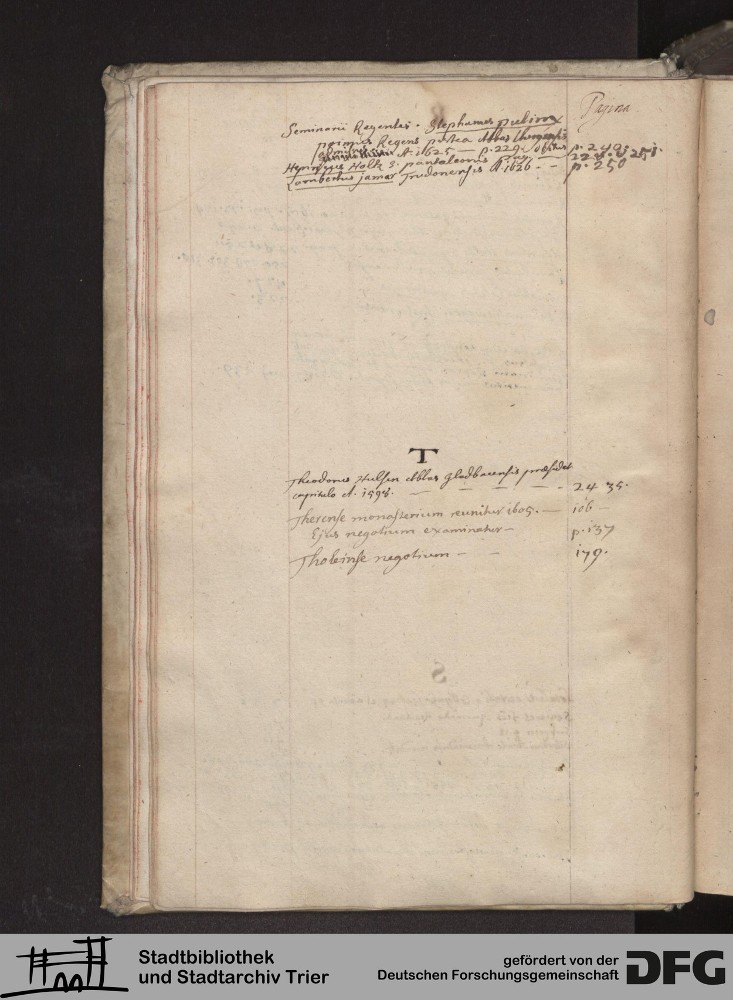 Pagina
Seminarii Regentes. Stephanus
primus Regens postea Abbas
A. 1625 — p. 229. obitus p. 249.
Henricus Holtz S. pantaleonis 251.
Lambertus jamar Trudonensis A. 1626 - - p. 250
T
Theodorus Hulsen Abbas gladbacensis præsidet
capitulo A. 1596. — — - - - 24 35.
Therense monasterium reunitur 1605. — 106 -
Ejus negotium examinatur - p. 137
Tholeinse negotium - - 179.
S
Stadtbibliothek
und Stadtarchiv Trier
gefördert von der
Deutschen Forschungsgemeinschaft
DFG